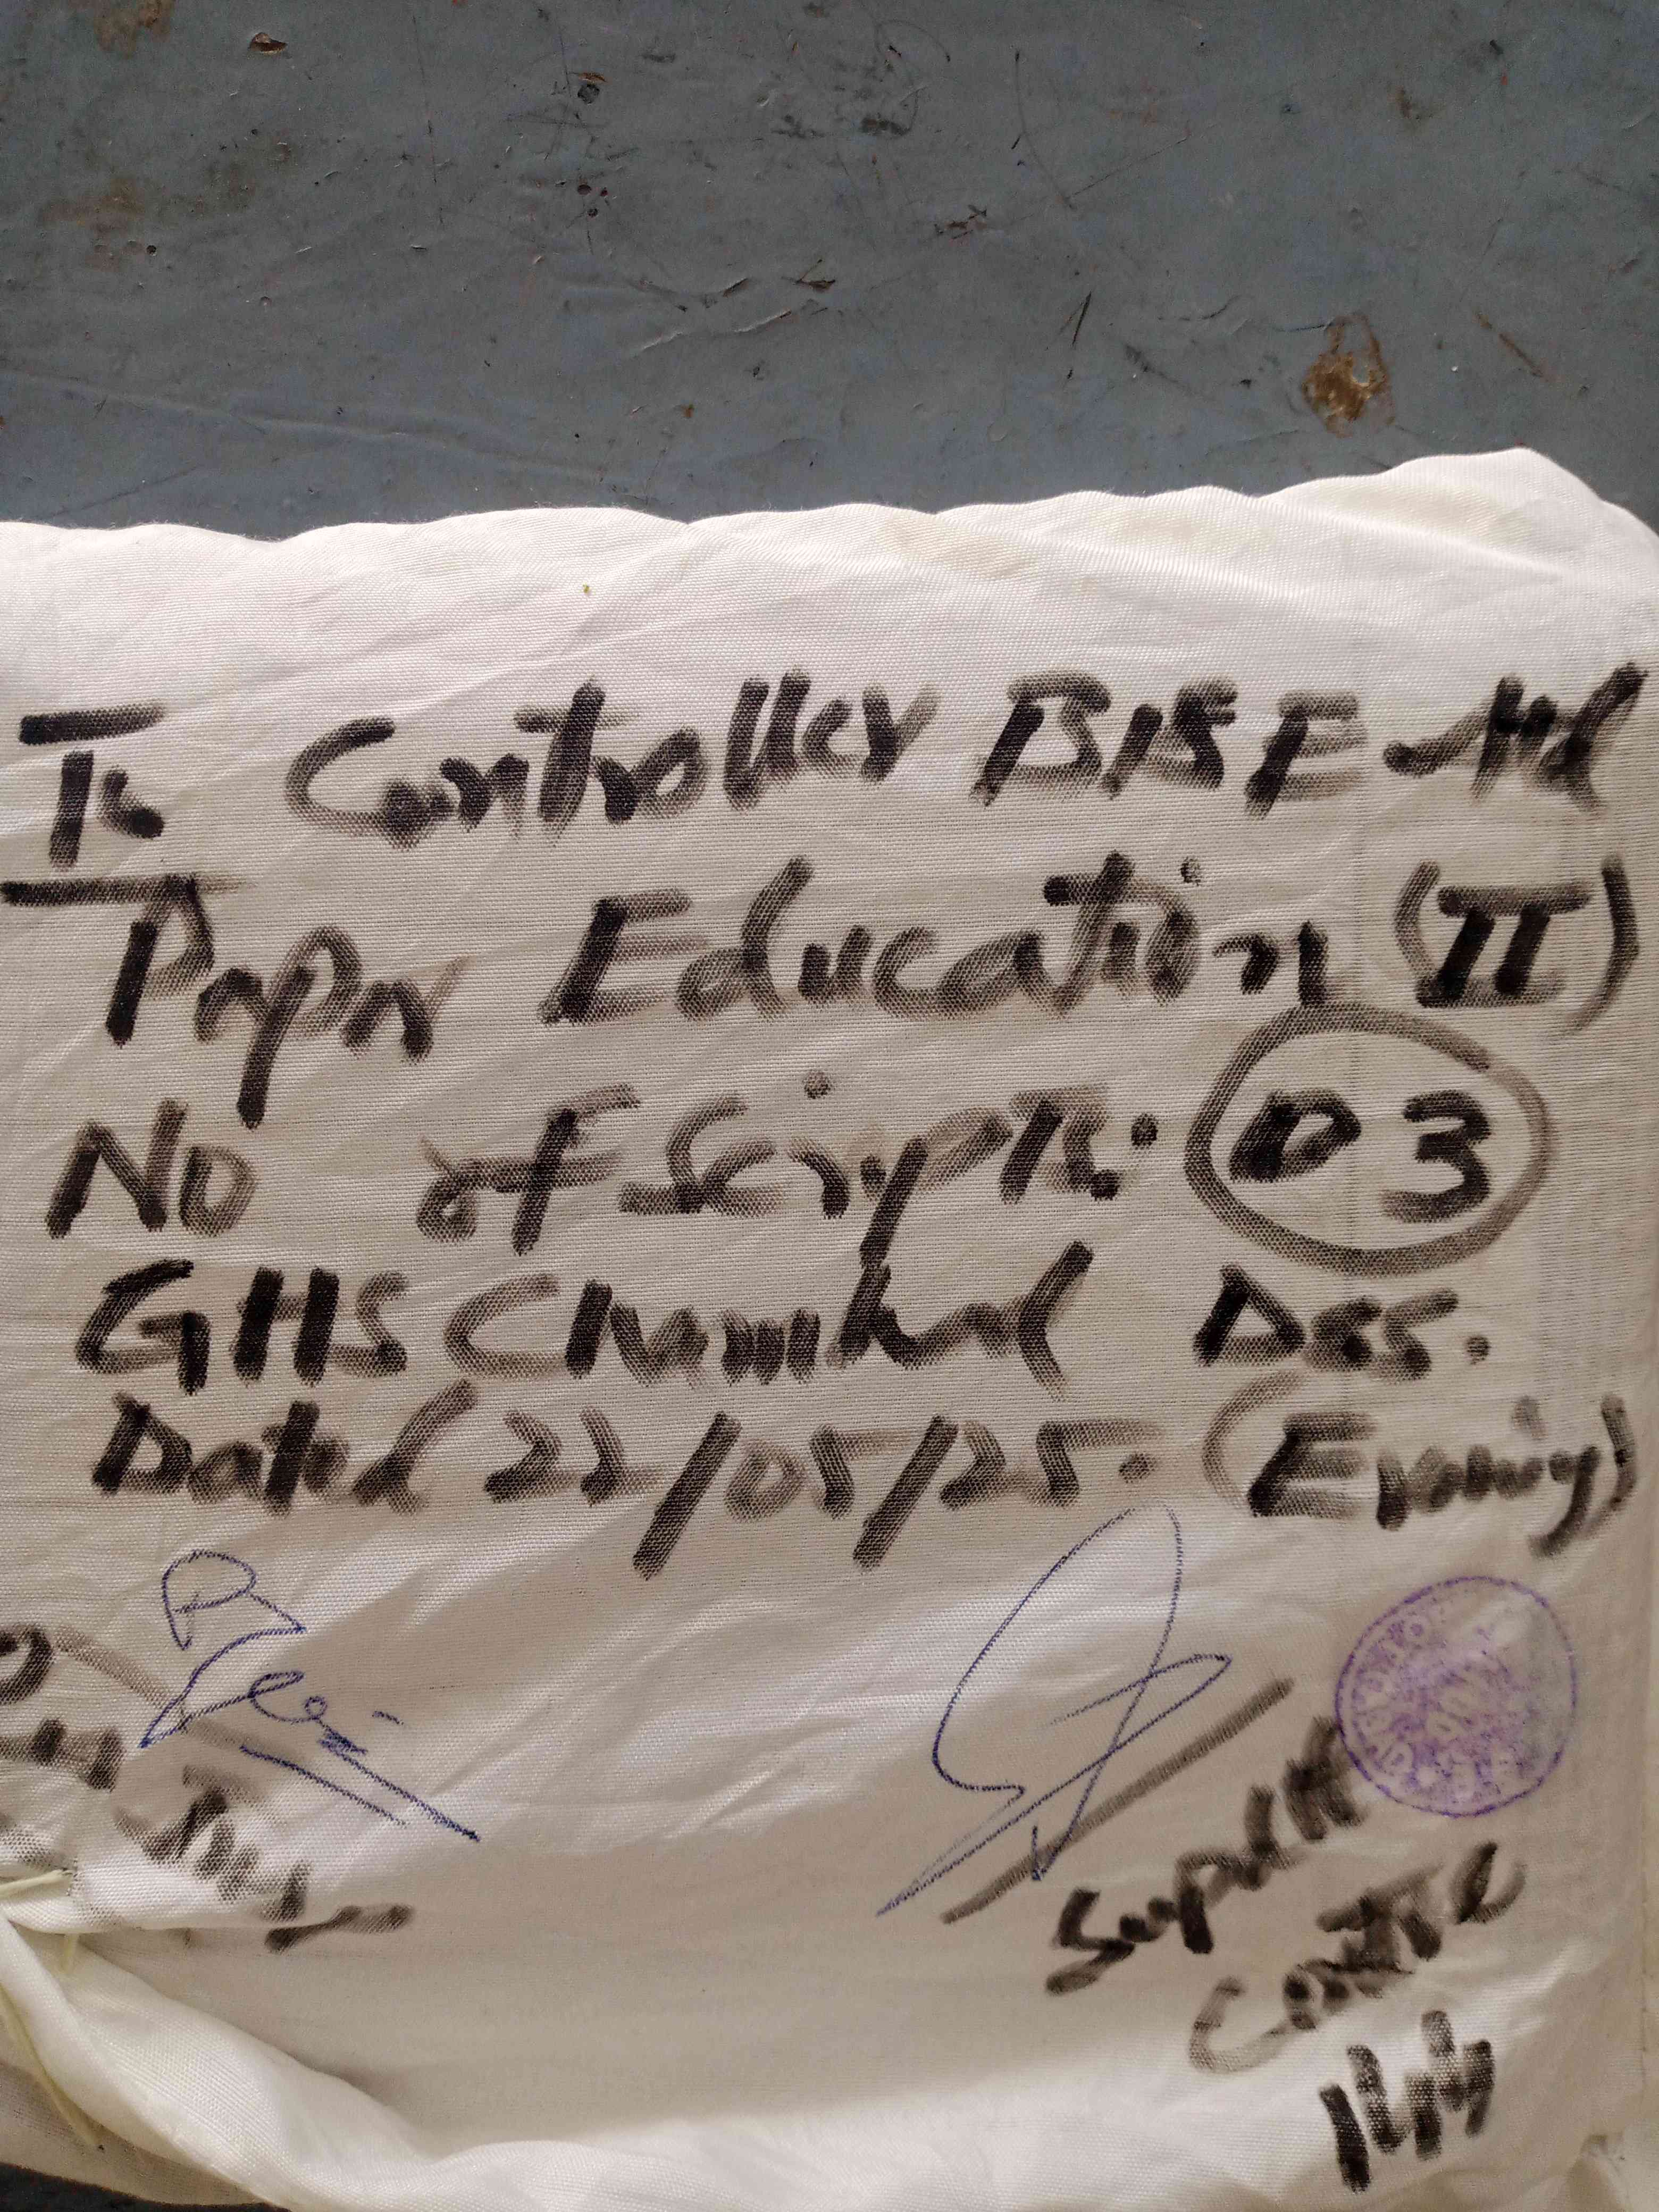 To Controller BISE Atd
Paper Education (II)
No of Script. 03
GHS Chamhad D85.
Dated 22/05/25. (Evening)
Supdtt
Centre
144